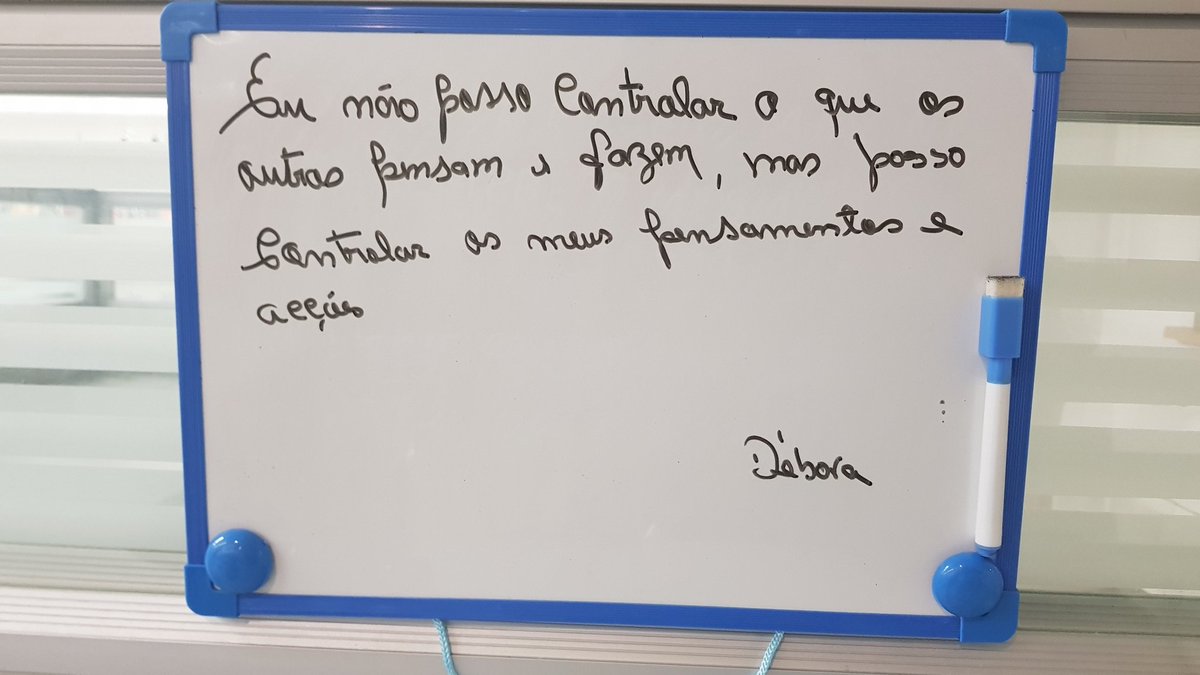 Eu não posso controlar o que os
outros pensam e fazem, mas posso
controlar os meus pensamentos e
acções
Débora